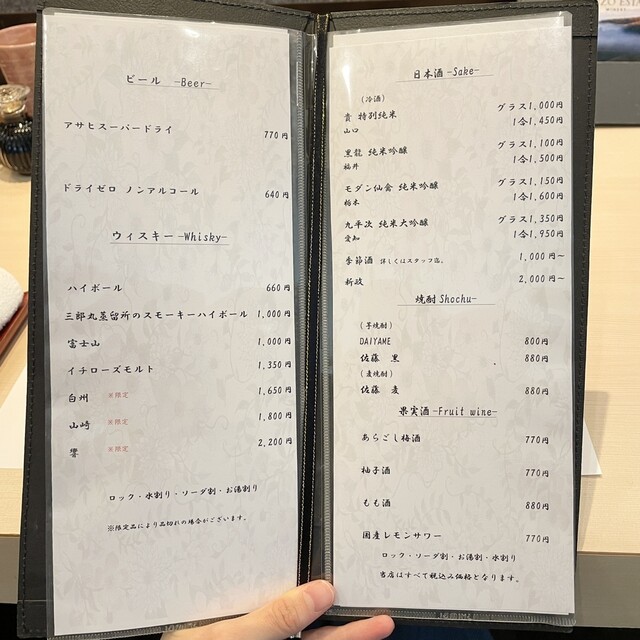 ビール -Beer-
アサヒスーパードライ 770円
ドライゼロ ノンアルコール 640円
ウィスキー -Whisky-
ハイボール 660円
三郎丸蒸留所のスモーキーハイボール 1,000円
富士山 1,000円
イチローズモルト 1,350円
白州 ※限定 1,650円
山崎 ※限定 1,800円
響 ※限定 2,200円
ロック・水割り・ソーダ割・お湯割り
※限定品により品切れの場合がございます。
日本酒 -Sake-
(冷酒)
貴 特別純米 グラス1,000円
山口 1合1,450円
黒龍 純米吟醸 グラス1,100円
福井 1合1,500円
モダン仙禽 純米吟醸 グラス1,150円
栃木 1合1,600円
九平次 純米大吟醸 グラス1,350円
愛知 1合1,950円
季節酒 詳しくはスタッフ迄。 1,000円~
新政 2,000円~
焼酎 Shochu-
(芋焼酎)
DAIYAME 800円
佐藤 黒 880円
(麦焼酎)
佐藤 麦 880円
果実酒 -Fruit wine-
あらごし梅酒 770円
柚子酒 770円
もも酒 880円
国産レモンサワー 770円
ロック・ソーダ割・お湯割・水割り
当店はすべて税込み価格となります。